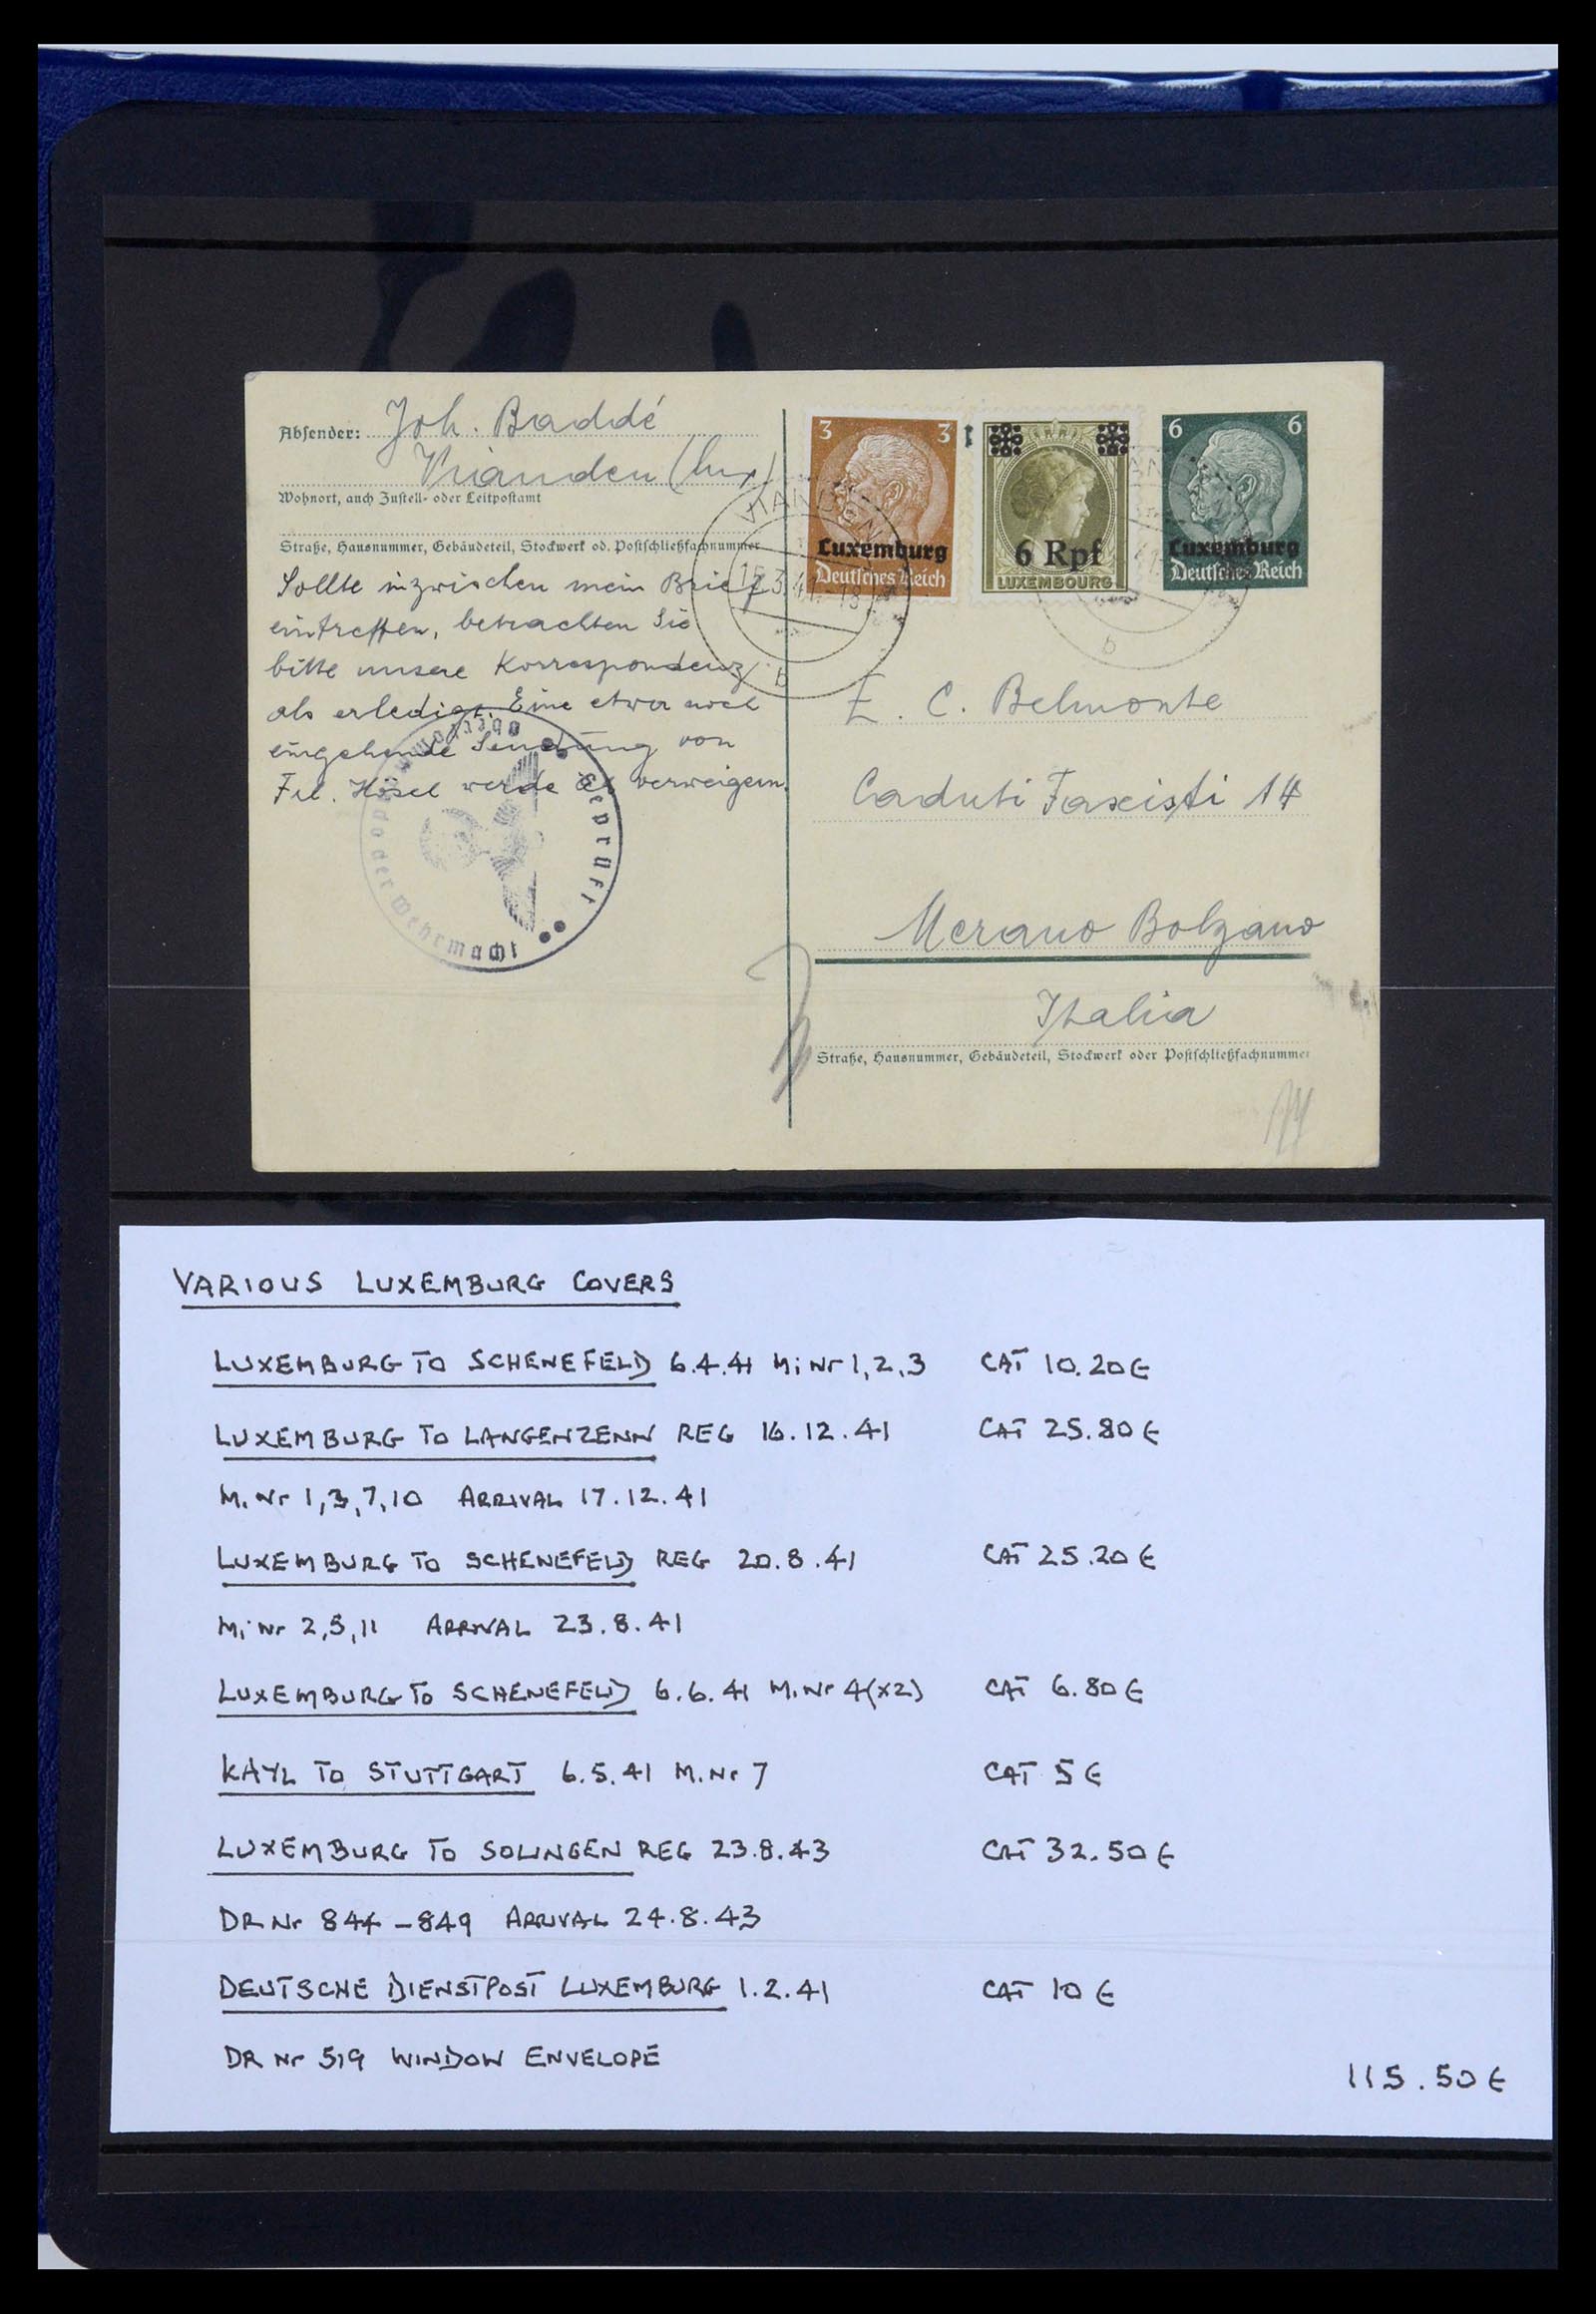 Absender: Joh. Baddé
Vianden (Lux)
Wohnort, auch Zustell- oder Leitpostamt
Straße, Hausnummer, Gebäudeteil, Stockwerk od. Postschließfachnummer
Sollte inzwischen mein Brief
eintreffen, betrachten Sie
bitte unsere Korrespondenz
als erledigt. Eine etwa noch
eingehende Sendung von
Frl. Hösel werde ich verweigern.
Geprüft
Oberkommando der Wehrmacht
VIANDEN
15.3.41.-18
b
3 3
Luxemburg
Deutsches Reich
6 Rpf
LUXEMBOURG
6 6
Luxemburg
Deutsches Reich
b
E. C. Belmonte
Caduti Fascisti 14
Merano Bolzano
Italia
Straße, Hausnummer, Gebäudeteil, Stockwerk oder Postschließfachnummer
VARIOUS LUXEMBURG COVERS
LUXEMBURG TO SCHENEFELD 6.4.41 Mi Nr 1,2,3 CAT 10.20€
LUXEMBURG TO LANGENZENN REG 16.12.41 CAT 25.80€
Mi Nr 1,3,7,10 ARRIVAL 17.12.41
LUXEMBURG TO SCHENEFELD REG 20.8.41 CAT 25.20€
Mi Nr 2,5,11 ARRIVAL 23.8.41
LUXEMBURG TO SCHENEFELD 6.6.41 Mi Nr 4(x2) CAT 6.80€
KAYL TO STUTTGART 6.5.41 Mi Nr 7 CAT 5€
LUXEMBURG TO SOLINGEN REG 23.8.43 CAT 32.50€
DR Nr 844-849 ARRIVAL 24.8.43
DEUTSCHE DIENSTPOST LUXEMBURG 1.2.41 CAT 10€
DR Nr 519 WINDOW ENVELOPE
115.50€